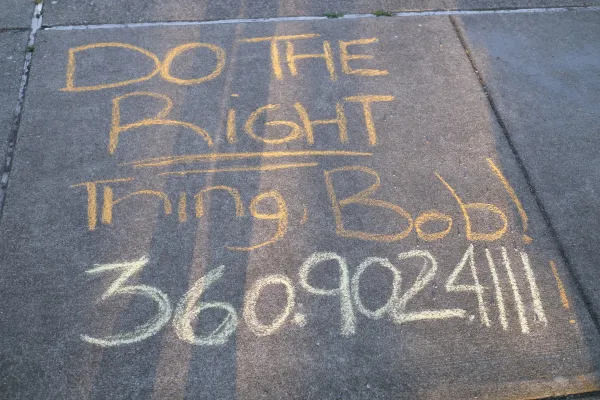 DO THE
RIGHT
Thing, Bob!
360.902.4111